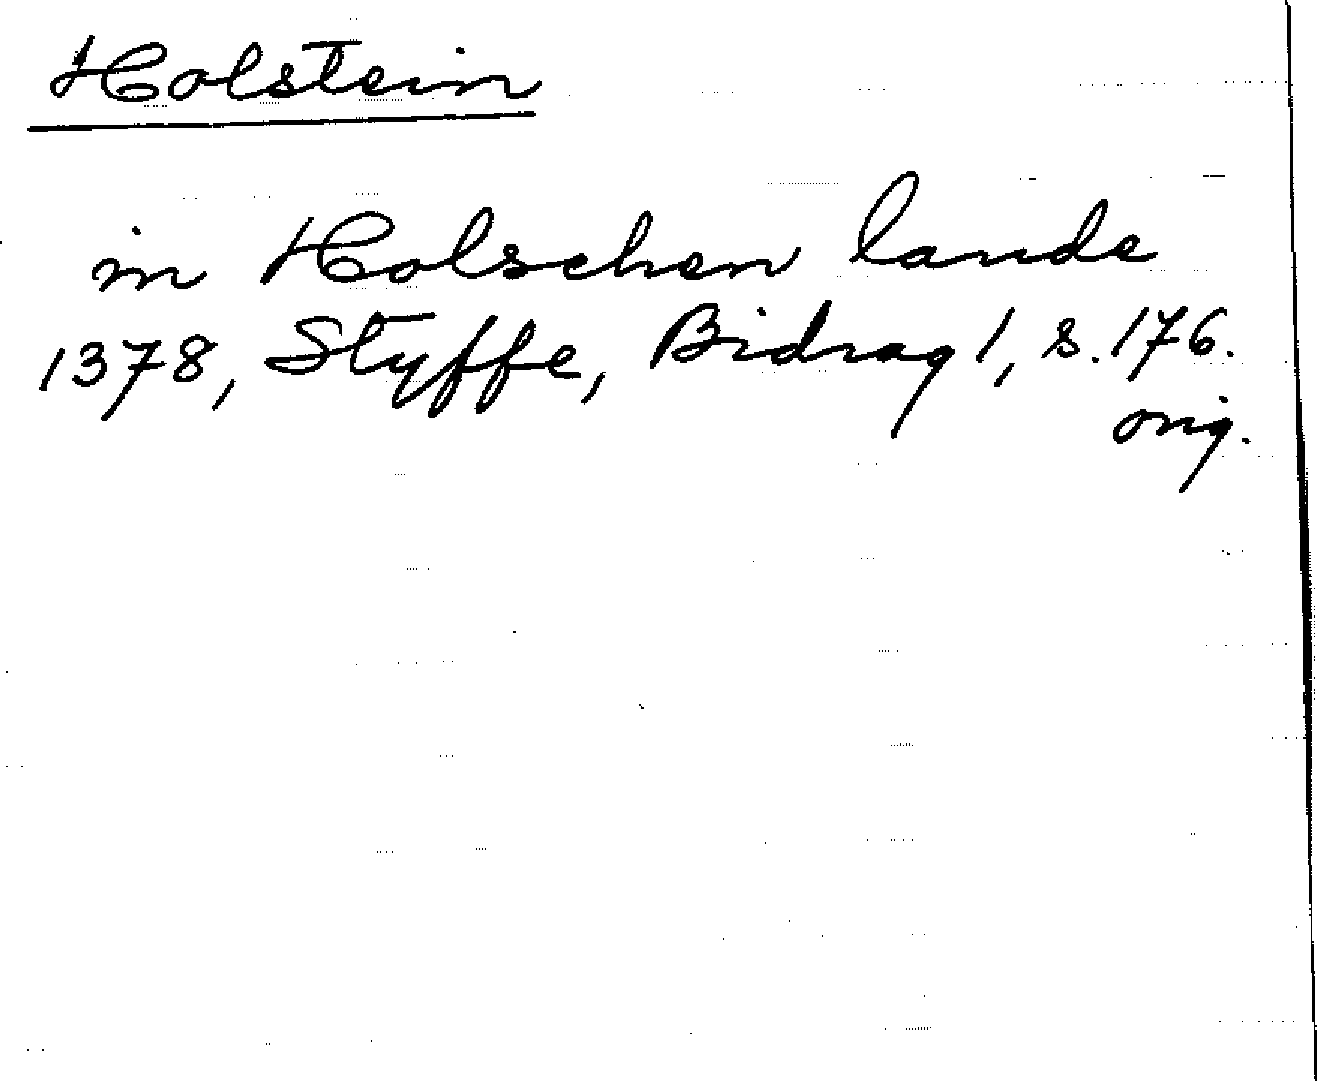 Holstein
in Holschen lande
1378, Styffe, Bidrag 1, s. 176.
orig.